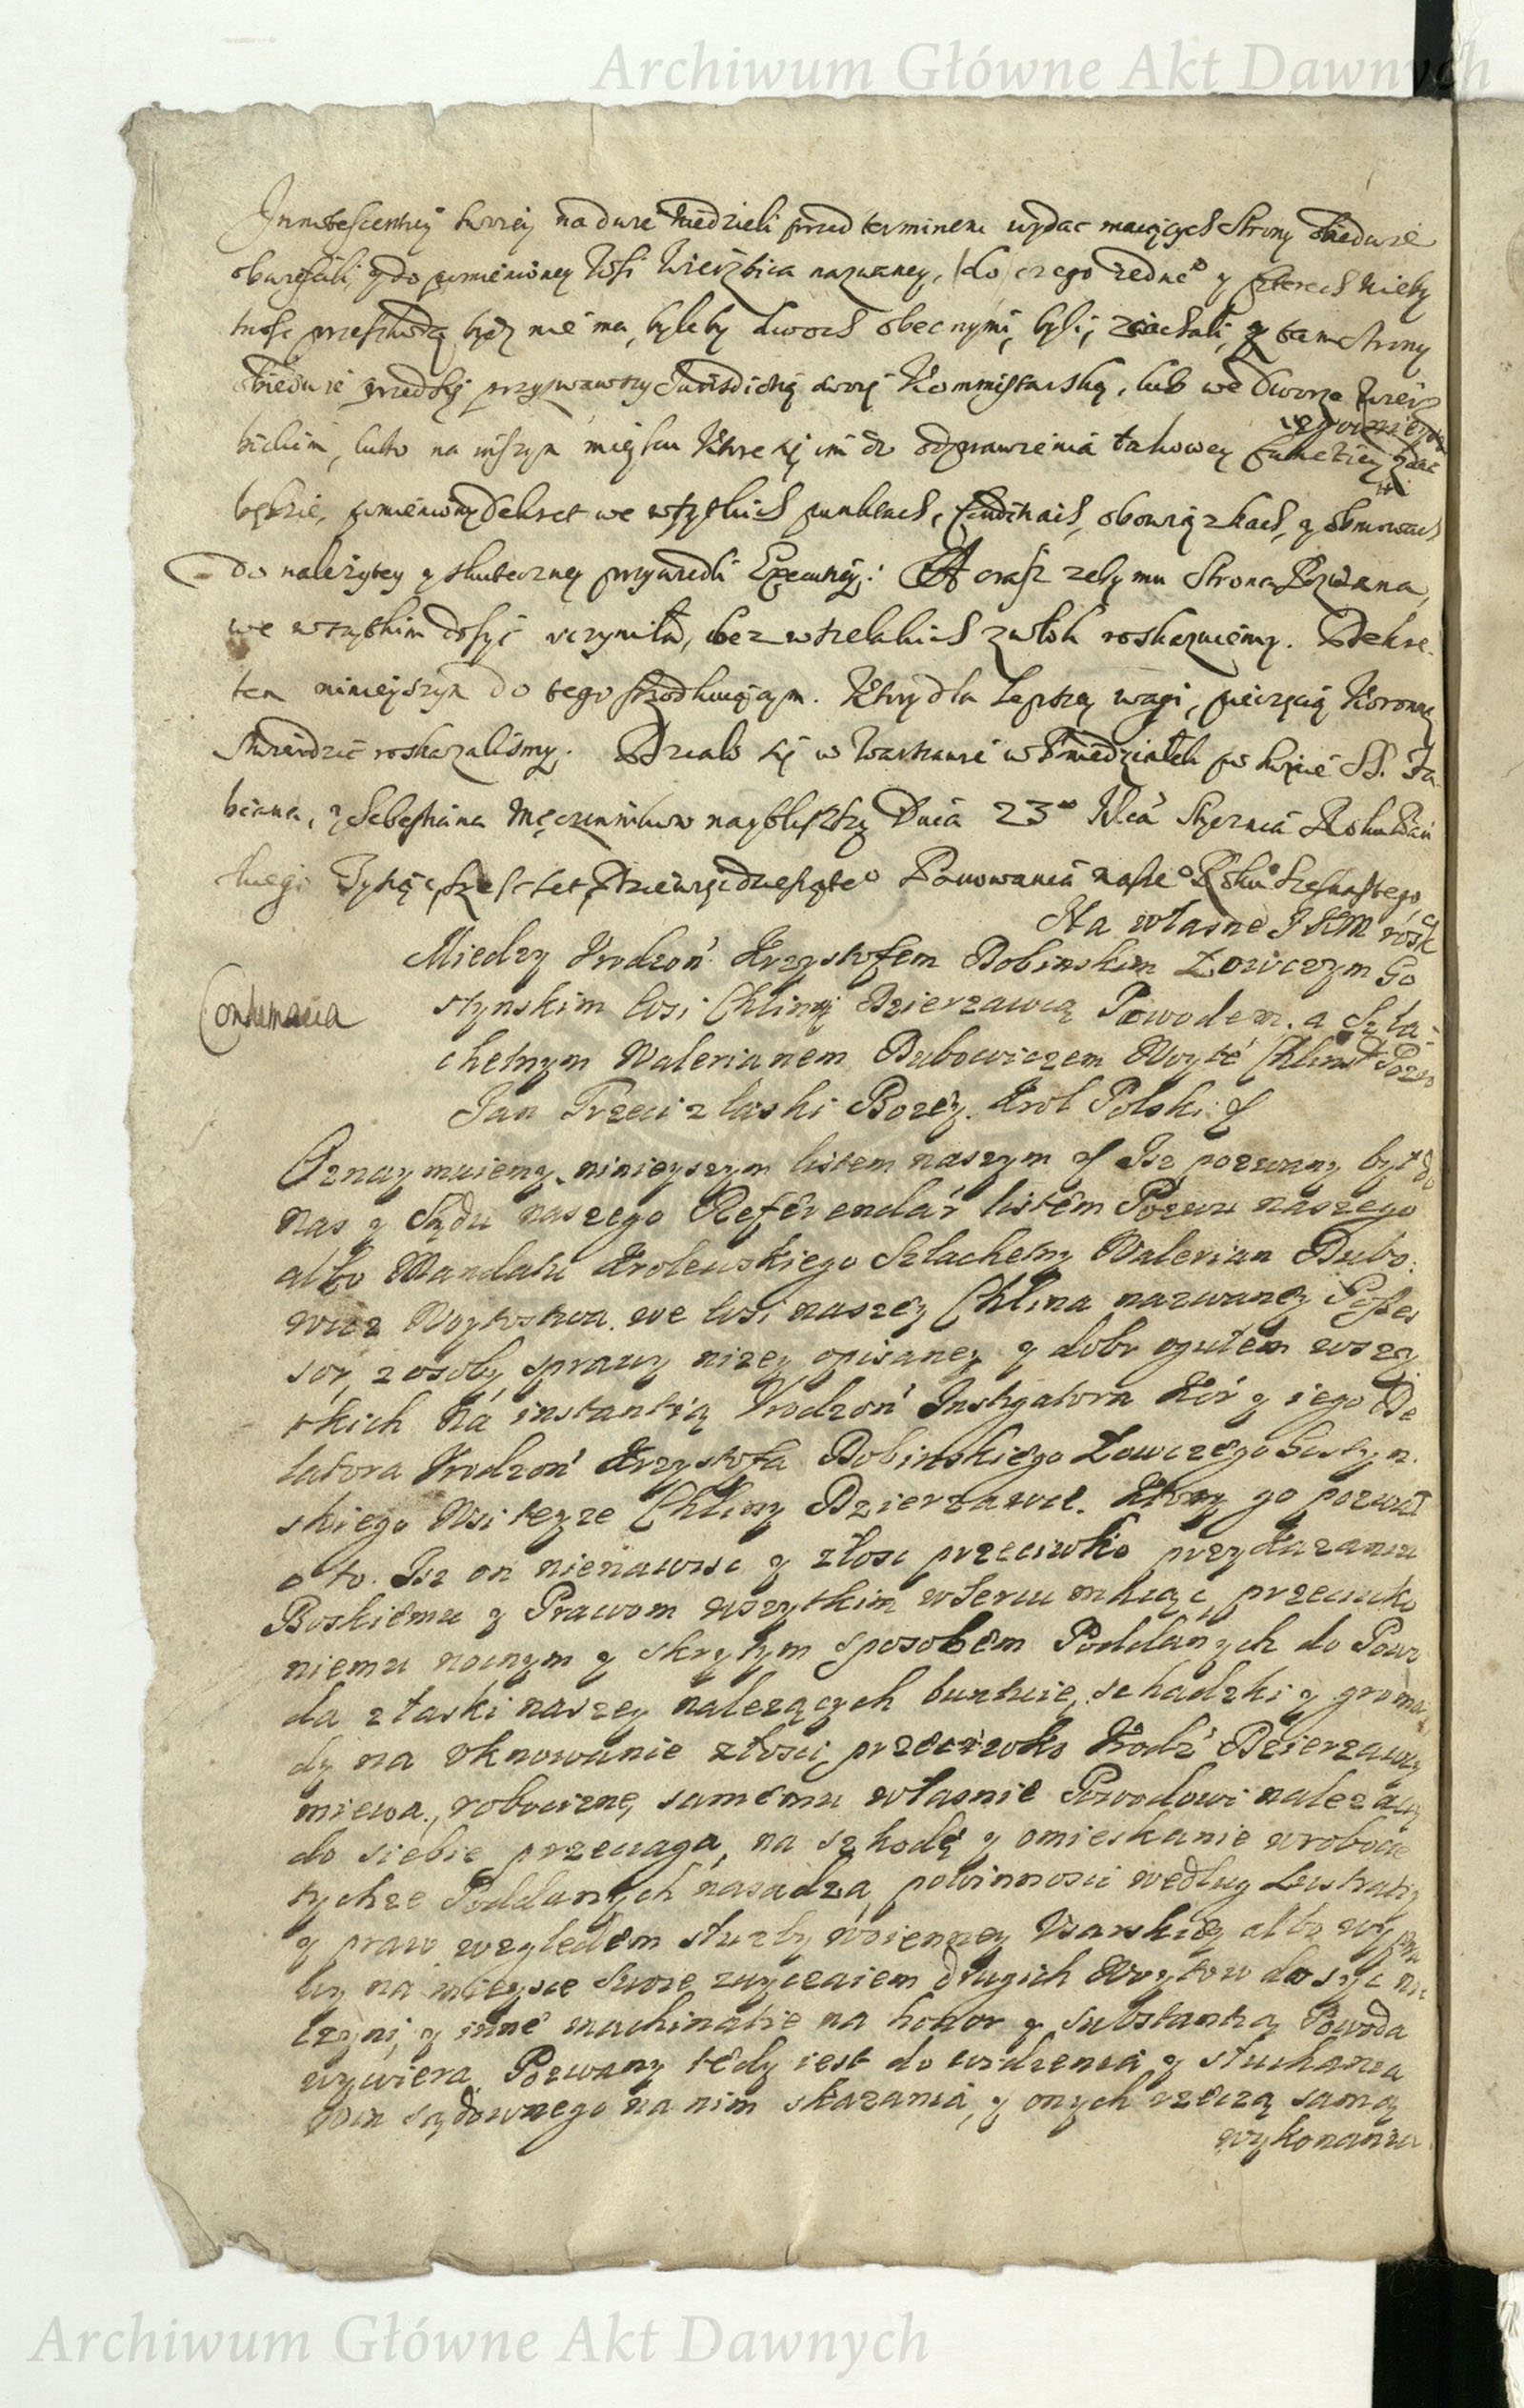 Archiwum Główne Akt Dawnych
Innotescentiej swoiey na dwie Niedzieli przed terminem wydac maiących Strony obiedwie
obwiescili, y do pomienioney Wsi Wierzbica nazwaney, do czego iedne° y czterech nieby
tnosc przeszkodą bydz nie ma, byleby dwoch obecnymi byli, ziachali, y tam strony
obiedwie przed się przyzwawszy Jurisdictią swoię Kommissarską, lub we Dworze Wierz
bickim, lubo na inszym mieyscu Ktore się im do odprawienia takowey functiey
będzie, pomieniony Dekret we wszytkich punktach, obowiązkach, y obmowach
do nalezytey y skuteczney przywiedli Exequtiey: A oraz zeby mu Strona Pozwana,
we wszytkim dosyc uczyniła, bez wszelakich zwłok roskazuiemy. Dekre-
tem ninieyszym do tego srzodkuiącym. Ktory dla lepszey wagi, pieczęcią Koronną
stwierdzic roskazalismy. Działo się w Warszawie w Poniedziałek po święcie SS. Fa-
biana, y Sebestiana Męczennikow naybliszszy Dnia 23° Mca Stycznia Roku Pan
skiego Tysiąc szescset Dziewiędziesiąte° Panowania nasze° Roku szesnastego
Na własne J K M rosk
Miedzy Urodzon Krzysztofem Bobinskim Łowczym Go
stynskim Wsi Chliny Dzierzawcą Powodem. a Szla-
chetnym Walerianem Dubowiczem Woyte Chlinsk Pozw
Contumacia
Jan Trzeci z łaski Bozey. Krol Polski. &
Oznaymuiemy ninieyszym listem naszym & Isz pozwany był do
nas y Sądu naszego Referendar listem Pozwu naszego
albo Mandatu Krolewskiego Szlachetny Walerian Dubo-
wicz Woytostwa. we Wsi naszey Chlina nazwaney Posses
sor, z osoby sprawy nizey opisaney y dobr ogułem wszy
tkich Na instantią Urodzon Instygatora Kor y iego De
latora Urodzon Krzysztofa Bobinskiego Łowczego Gostyn.
skiego Wsi teyze Chliny Dzierzawce. Ktory go pozwał
o to. Isz on nienawisc y złosc przeciwko przykazaniu
Boskiemu y Prawom wszytkim w sercu maiąc, przeciwko
niemu nocnym y skrytym sposobem Poddanych do Powo
da z łaski naszey nalezących buntuie, schadzki y groma
dy na uknowanie złosci przeciwko Urodz Dzierzawcy
miewa, robociznę samemu własnie Powodowi nalezącą
do siebie przeciaga, na szkodę y omieskanie w robocie
tychze Poddanych nasadza, powinnosci według Lustratiy
y praw względem słuzby woienney Usarskiey albo wypra
wy na mieysce swoie zwyczaiem drugich Woytow dosyc nie
czyni, y inne machinatie na honor y substantią Powoda
wywiera. Pozwany tedy iest do widzenia y słuchania
Win sądownego na nim skazania, y onych rzeczą samą
wykonania
Archiwum Główne Akt Dawnych